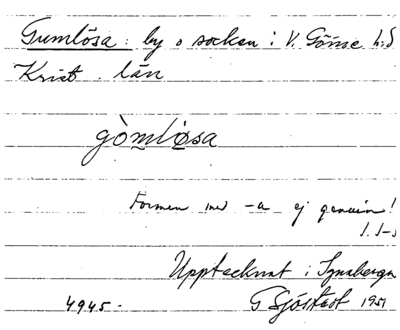 Gumlösa: by o socken i V. Göinge h:d
Krist. län
gòmlø̀sa
Formen med -a ej genuin!
I. I-s
Upptecknat i Synaberga
4945. G Sjöstedt 1951